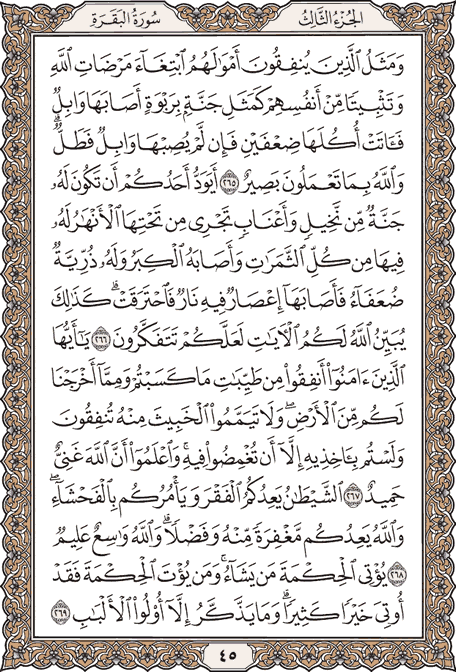 الجزء الثالث
سورة البقرة
وَمَثَلُ الَّذِينَ يُنفِقُونَ أَمْوَٰلَهُمُ ابْتِغَآءَ مَرْضَاتِ اللَّهِ
وَتَثْبِيتًا مِّنْ أَنفُسِهِمْ كَمَثَلِ جَنَّةٍۭ بِرَبْوَةٍ أَصَابَهَا وَابِلٌ
فَـَٔاتَتْ أُكُلَهَا ضِعْفَيْنِ فَإِن لَّمْ يُصِبْهَا وَابِلٌ فَطَلٌّ ۗ
وَاللَّهُ بِمَا تَعْمَلُونَ بَصِيرٌ ٢٦٥ أَيَوَدُّ أَحَدُكُمْ أَن تَكُونَ لَهُۥ
جَنَّةٌ مِّن نَّخِيلٍ وَأَعْنَابٍ تَجْرِى مِن تَحْتِهَا الْأَنْهَٰرُ لَهُۥ
فِيهَا مِن كُلِّ الثَّمَرَٰتِ وَأَصَابَهُ الْكِبَرُ وَلَهُۥ ذُرِّيَّةٌ
ضُعَفَآءُ فَأَصَابَهَآ إِعْصَارٌ فِيهِ نَارٌ فَاحْتَرَقَتْ ۗ كَذَٰلِكَ
يُبَيِّنُ اللَّهُ لَكُمُ الْـَٔايَٰتِ لَعَلَّكُمْ تَتَفَكَّرُونَ ٢٦٦ يَٰٓأَيُّهَا
الَّذِينَ ءَامَنُوٓا۟ أَنفِقُوا۟ مِن طَيِّبَٰتِ مَا كَسَبْتُمْ وَمِمَّآ أَخْرَجْنَا
لَكُم مِّنَ الْأَرْضِ ۖ وَلَا تَيَمَّمُوا۟ الْخَبِيثَ مِنْهُ تُنفِقُونَ
وَلَسْتُم بِـَٔاخِذِيهِ إِلَّآ أَن تُغْمِضُوا۟ فِيهِ ۚ وَاعْلَمُوٓا۟ أَنَّ اللَّهَ غَنِىٌّ
حَمِيدٌ ٢٦٧ الشَّيْطَٰنُ يَعِدُكُمُ الْفَقْرَ وَيَأْمُرُكُم بِالْفَحْشَآءِ ۖ
وَاللَّهُ يَعِدُكُم مَّغْفِرَةً مِّنْهُ وَفَضْلًا ۗ وَاللَّهُ وَٰسِعٌ عَلِيمٌ
٢٦٨ يُؤْتِى الْحِكْمَةَ مَن يَشَآءُ ۚ وَمَن يُؤْتَ الْحِكْمَةَ فَقَدْ
أُوتِىَ خَيْرًا كَثِيرًا ۗ وَمَا يَذَّكَّرُ إِلَّآ أُو۟لُوا۟ الْأَلْبَٰبِ ٢٦٩
٤٥